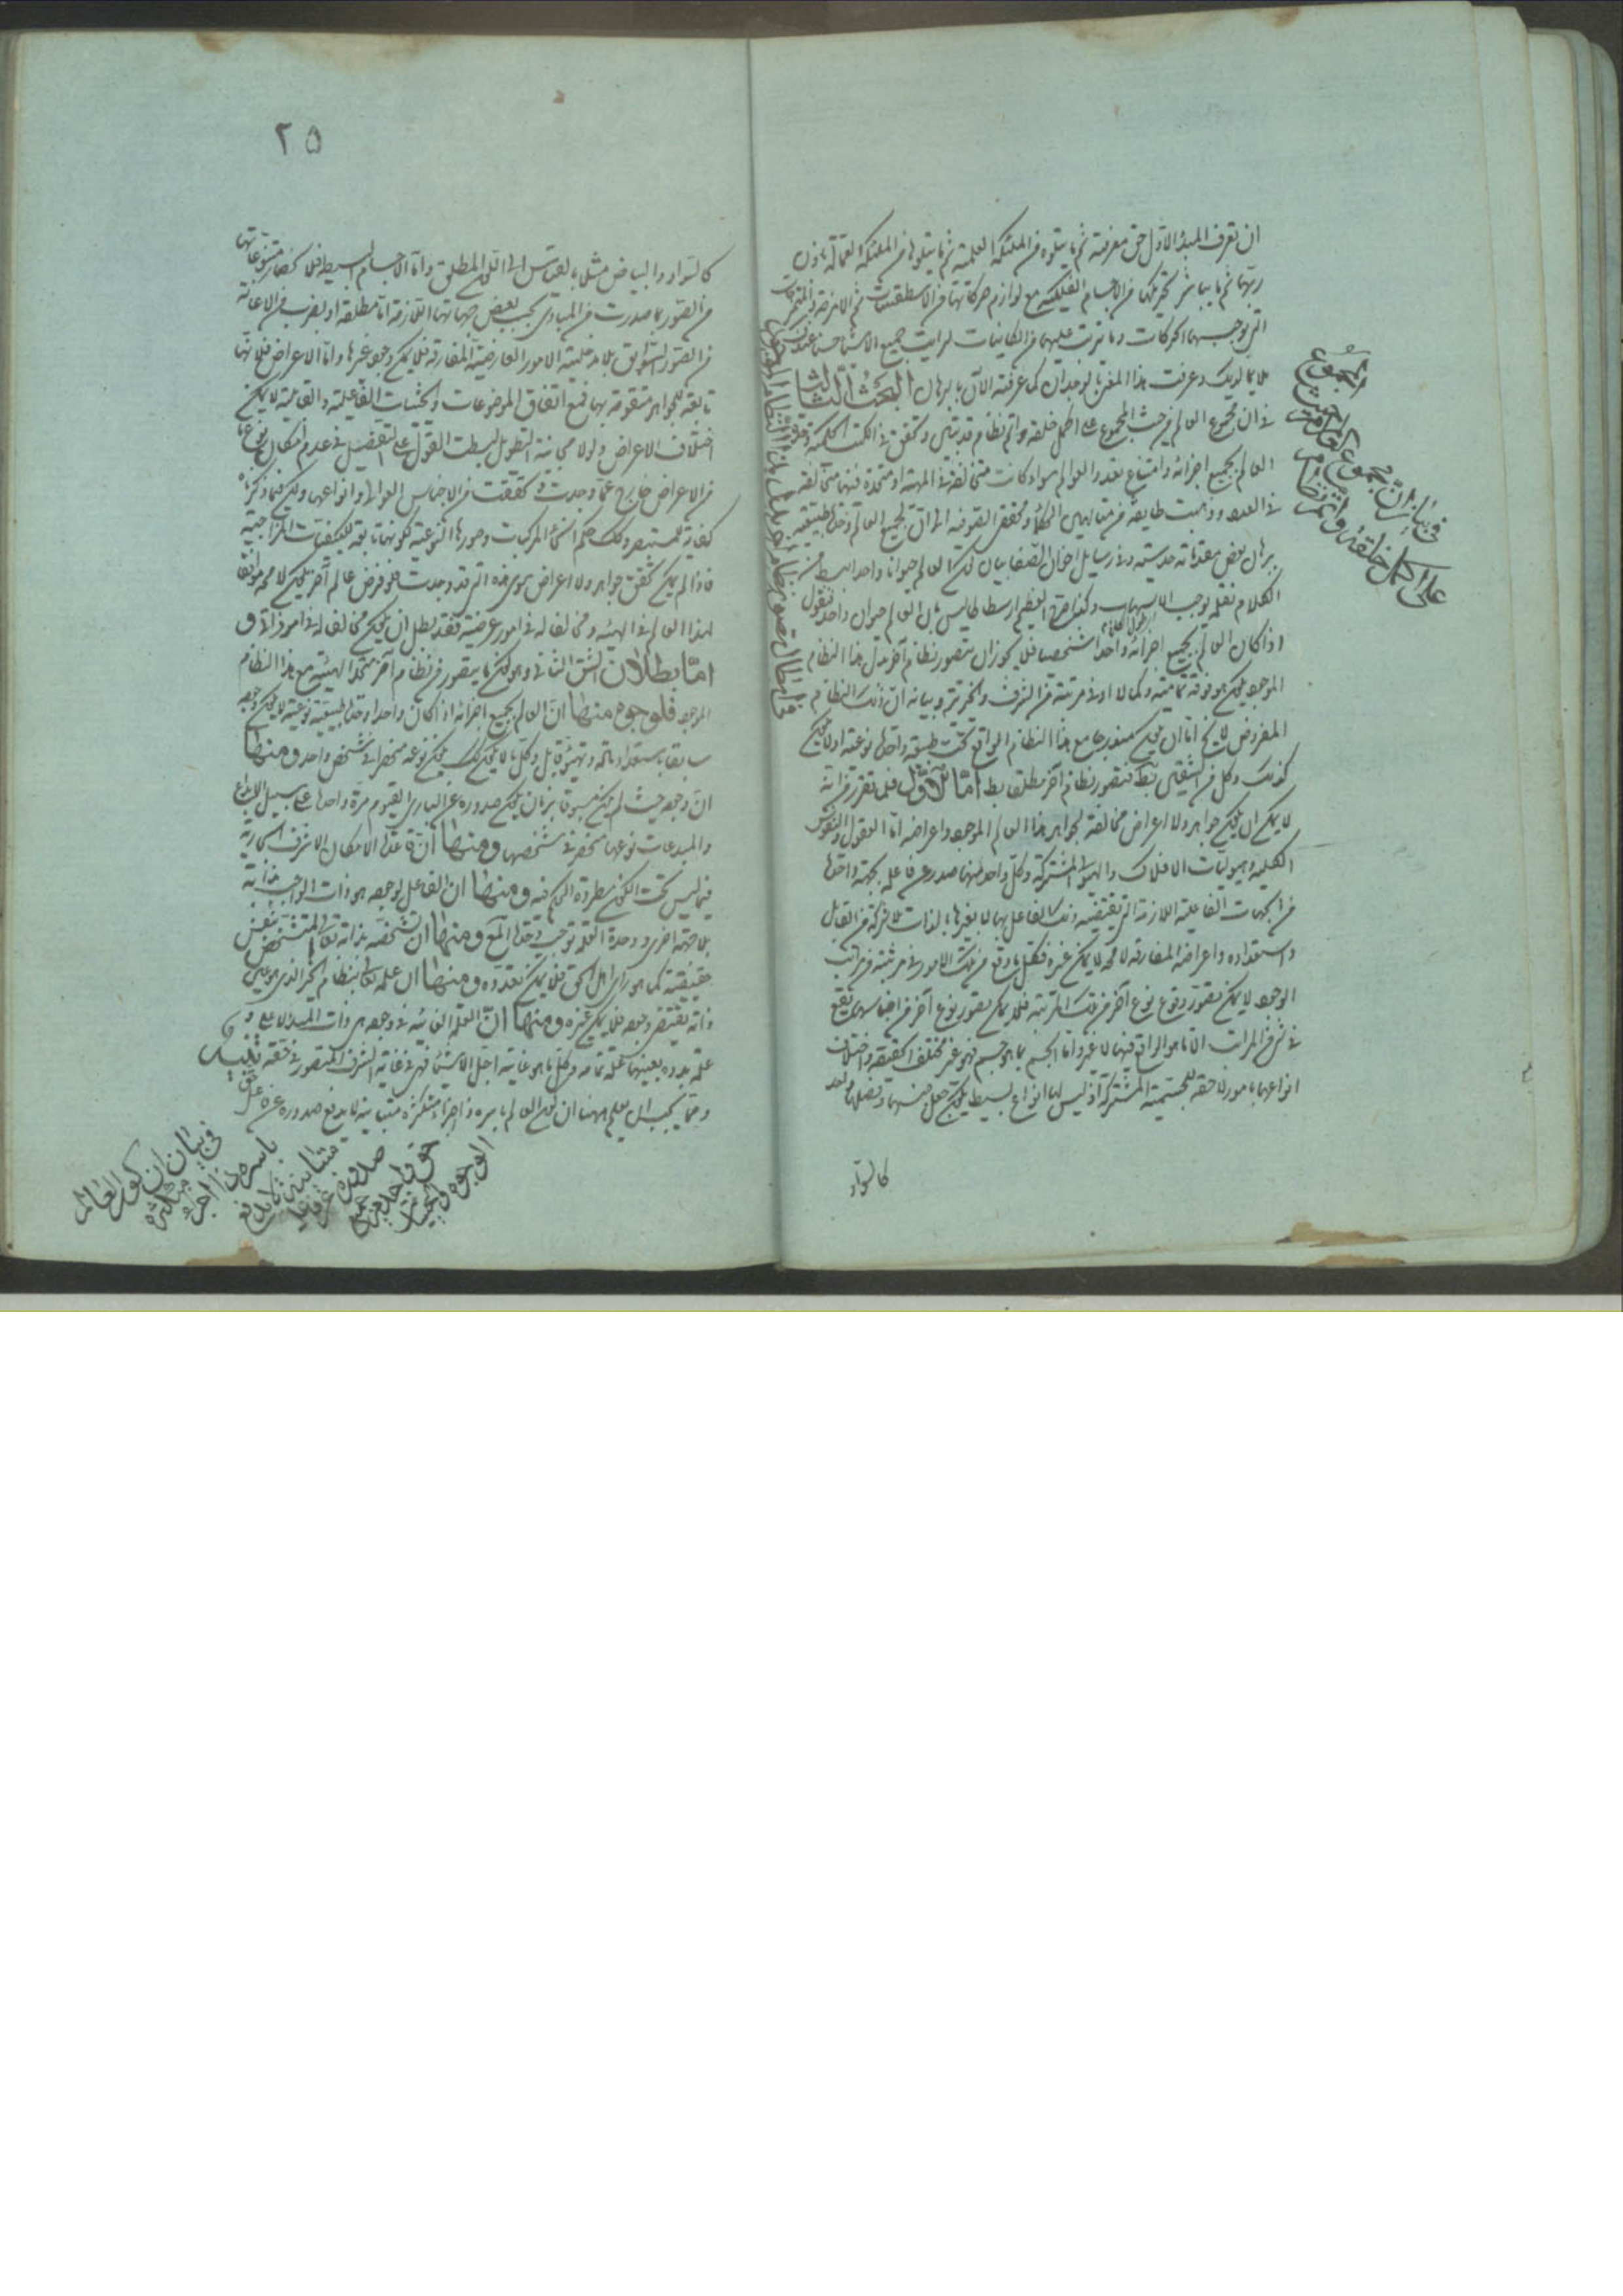 ان تعرف المبدأ الاول حق معرفته ثم ما يتلوه من الملئكة العلمية ثم ما يتلوها من الملئكة العمالة باذن
ربها ثم ما يباشر تحريكها من الاجسام الفلكية مع لوازم حركاتها من الاسطقسات ثم الامزجة
التي توجبها الحركات وما يترتب عليها من الكاينات لرايت جميع الاشيا حسنا عندك
ملايما لديك وعرفت هذا المعنى بالوجدان كما عرفته الان بالبرهان البحث الثالث
في ان مجموع العالم من حيث المجموع على اكمل خلقه واتم نظام قد تبين وتحقق في الكتب الحكمية
العالم بجميع اجزائه وامتناع تعدد العوالم سواء كانت متخالفة في المهية او متحدة فيها متخالفة
في العدد وذهبت طايفة من متألهين الحكماء ومحققي الصوفية الى ان لجميع العالم وحدة طبيعية
برهان بعض مقدماته حدسية وفي رسايل اخوان الصفا بيان كون العالم حيوانا واحدا ببسط من
الكلام نقله يوجب الاسهاب وكفاك تصريح المعظم ارسطاطاليس بان العالم حيوان واحد فنقول
اذا كان العالم بجميع اجزائه واحدا شخصيا فلا يجوز ان يتصور نظام آخر بدل هذا النظام
الموجود يكون فوقه تمامية وكمالا او في مرتبته من الشرف والخيرية وبيانه ان ذلك النظام
المفروض لا يخ اما ان يكون بحسب تصوره جامع هذا النظام الواقع تحت طبيعة واحدة نوعية او لا يكون
كذلك وكل من الشقين بط فتصور نظام آخر مطلقا بط اما الاول فلما تقرر من انه
لا يمكن ان يكون جواهر ولا اعراض مخالفة لجواهر هذا العالم الموجود واعراضه اما العقول والنفوس
الكلية وهيوليات الافلاك والهيولى المشتركة وكل واحد منها صدر عن فاعله بجهة واحدة
من الجهات الفاعلية اللازمة التي يقتضيه ذلك الفاعل بها لا بغيرها بالذات بلا شركة من القابل
واستعداده واعراضه المفارقة لا محه لا يمكن غيره فكل ما وقع من تلك الامور في مرتبة من مراتب
الوجود لا يمكن تصور وقوع نوع آخر من تلك المرتبة فلا يمكن تصور نوع آخر من اجناسها يقع
في شيء من المراتب الا ما هو الواقع فيها لا غير واما الجسم بما هو جسم فهو غير مختلف الحقيقة واختلاف
انواعها بامور لاحقة للجسمية المشتركة اذ ليس لها انواع بسيط يكون جعل جنسها وفصلها واحد
كالسواد
المجموع
في بيان ان مجموع العالم من حيث
على اكمل خلقة واتم نظام
٢٥
كالسواد والبياض مثلا بالقياس الى اللون المطلق واما الاجسام البسيطة فلانحصار متنوعاتها
من الصور بما صدرت من المبادي بحسب بعض جهاتها اللازمة اما مطلقا او بضرب من الاعانة
من الصور السوابق بلا مدخلية الامور العارضية المفارقة فلا يمكن وجود غيرها واما الاعراض فلانها
تابعة للجواهر متقومة بها فمع اتفاق الموضوعات والحيثيات الفاعلية والقابلية لا يمكن
اختلاف الاعراض ولولا مجانبة التطويل لبسطت القول على التفصيل في عدم امكان نوع ما
من الاعراض خارج عما وجدت وتحققت من الاجناس العوالي وانواعها ولكن فيما ذكرناه
كفاية للمستبصر وكذلك حكم انحاء المركبات وصورها النوعية لكونها تابعة للكيفيات المزاجية
فاذا لم يكن تحقق جواهر ولا اعراض سوى هذه التي قد وجدت فلو فرض عالم آخر يكون لا محه موافقا
لهذا العالم في المهية ومخالفا له في امور عرضية فقد بطل ان يكون مخالفا له في امور ذاتية
اما بطلان الشق الثاني وهو كون ما يتصور من نظام آخر متحد المهية مع هذا النظام
الموجود فلوجوه منها ان العالم بجميع اجزائه اذا كان واحدا وحدة طبيعية نوعية لا يكون وجوده
سابقا باستعداد مادة وتهيؤ قابل وكل ما لا يكون كذلك يكون نوعه منحصرا في شخص واحد ومنها
ان وجوده حيث لم يكن مسبوقا بزمان يكون صدوره عن الباري القيوم مرة واحدة على سبيل الابداع
والمبدعات نوعها منحصر في شخصها ومنها ان قاعدة الامكان الاشرف الجارية
فيما ليس تحت الكون مطردة الحكم فيه ومنها ان الفاعل لوجوده هو ذات الواجب بذاته
بلا جهة اخرى ووحدة العلة توجب وحدة المع ومنها ان تشخصه بذاته تعالى المتشخص بنفس
حقيقته كما هو راى اهل الحق فلا يمكن تعدده ومنها ان علمه تعالى بنظام الخير الذي هو عين
ذاته يقتضي وجوده فلا يمكن غيره ومنها ان العلة الغائية في وجوده هي ذات المبدا الاعلى و
علة بدوه بعينها علة تمامه وكل ما هو غايته اجل الاشياء فهو في غاية الشرف المتصور في حقه تنبيه
ومما يجب ان يعلم ههنا ان كون العالم باسره ذا اجزاء متكثرة متباينة لا يدفع صدوره عن
في بيان ان كون العالم
باسره ذا اجزاء متكثرة
متباينة لا يدفع
صدوره عن
حق واحد من جميع
الوجوه والحيثيات